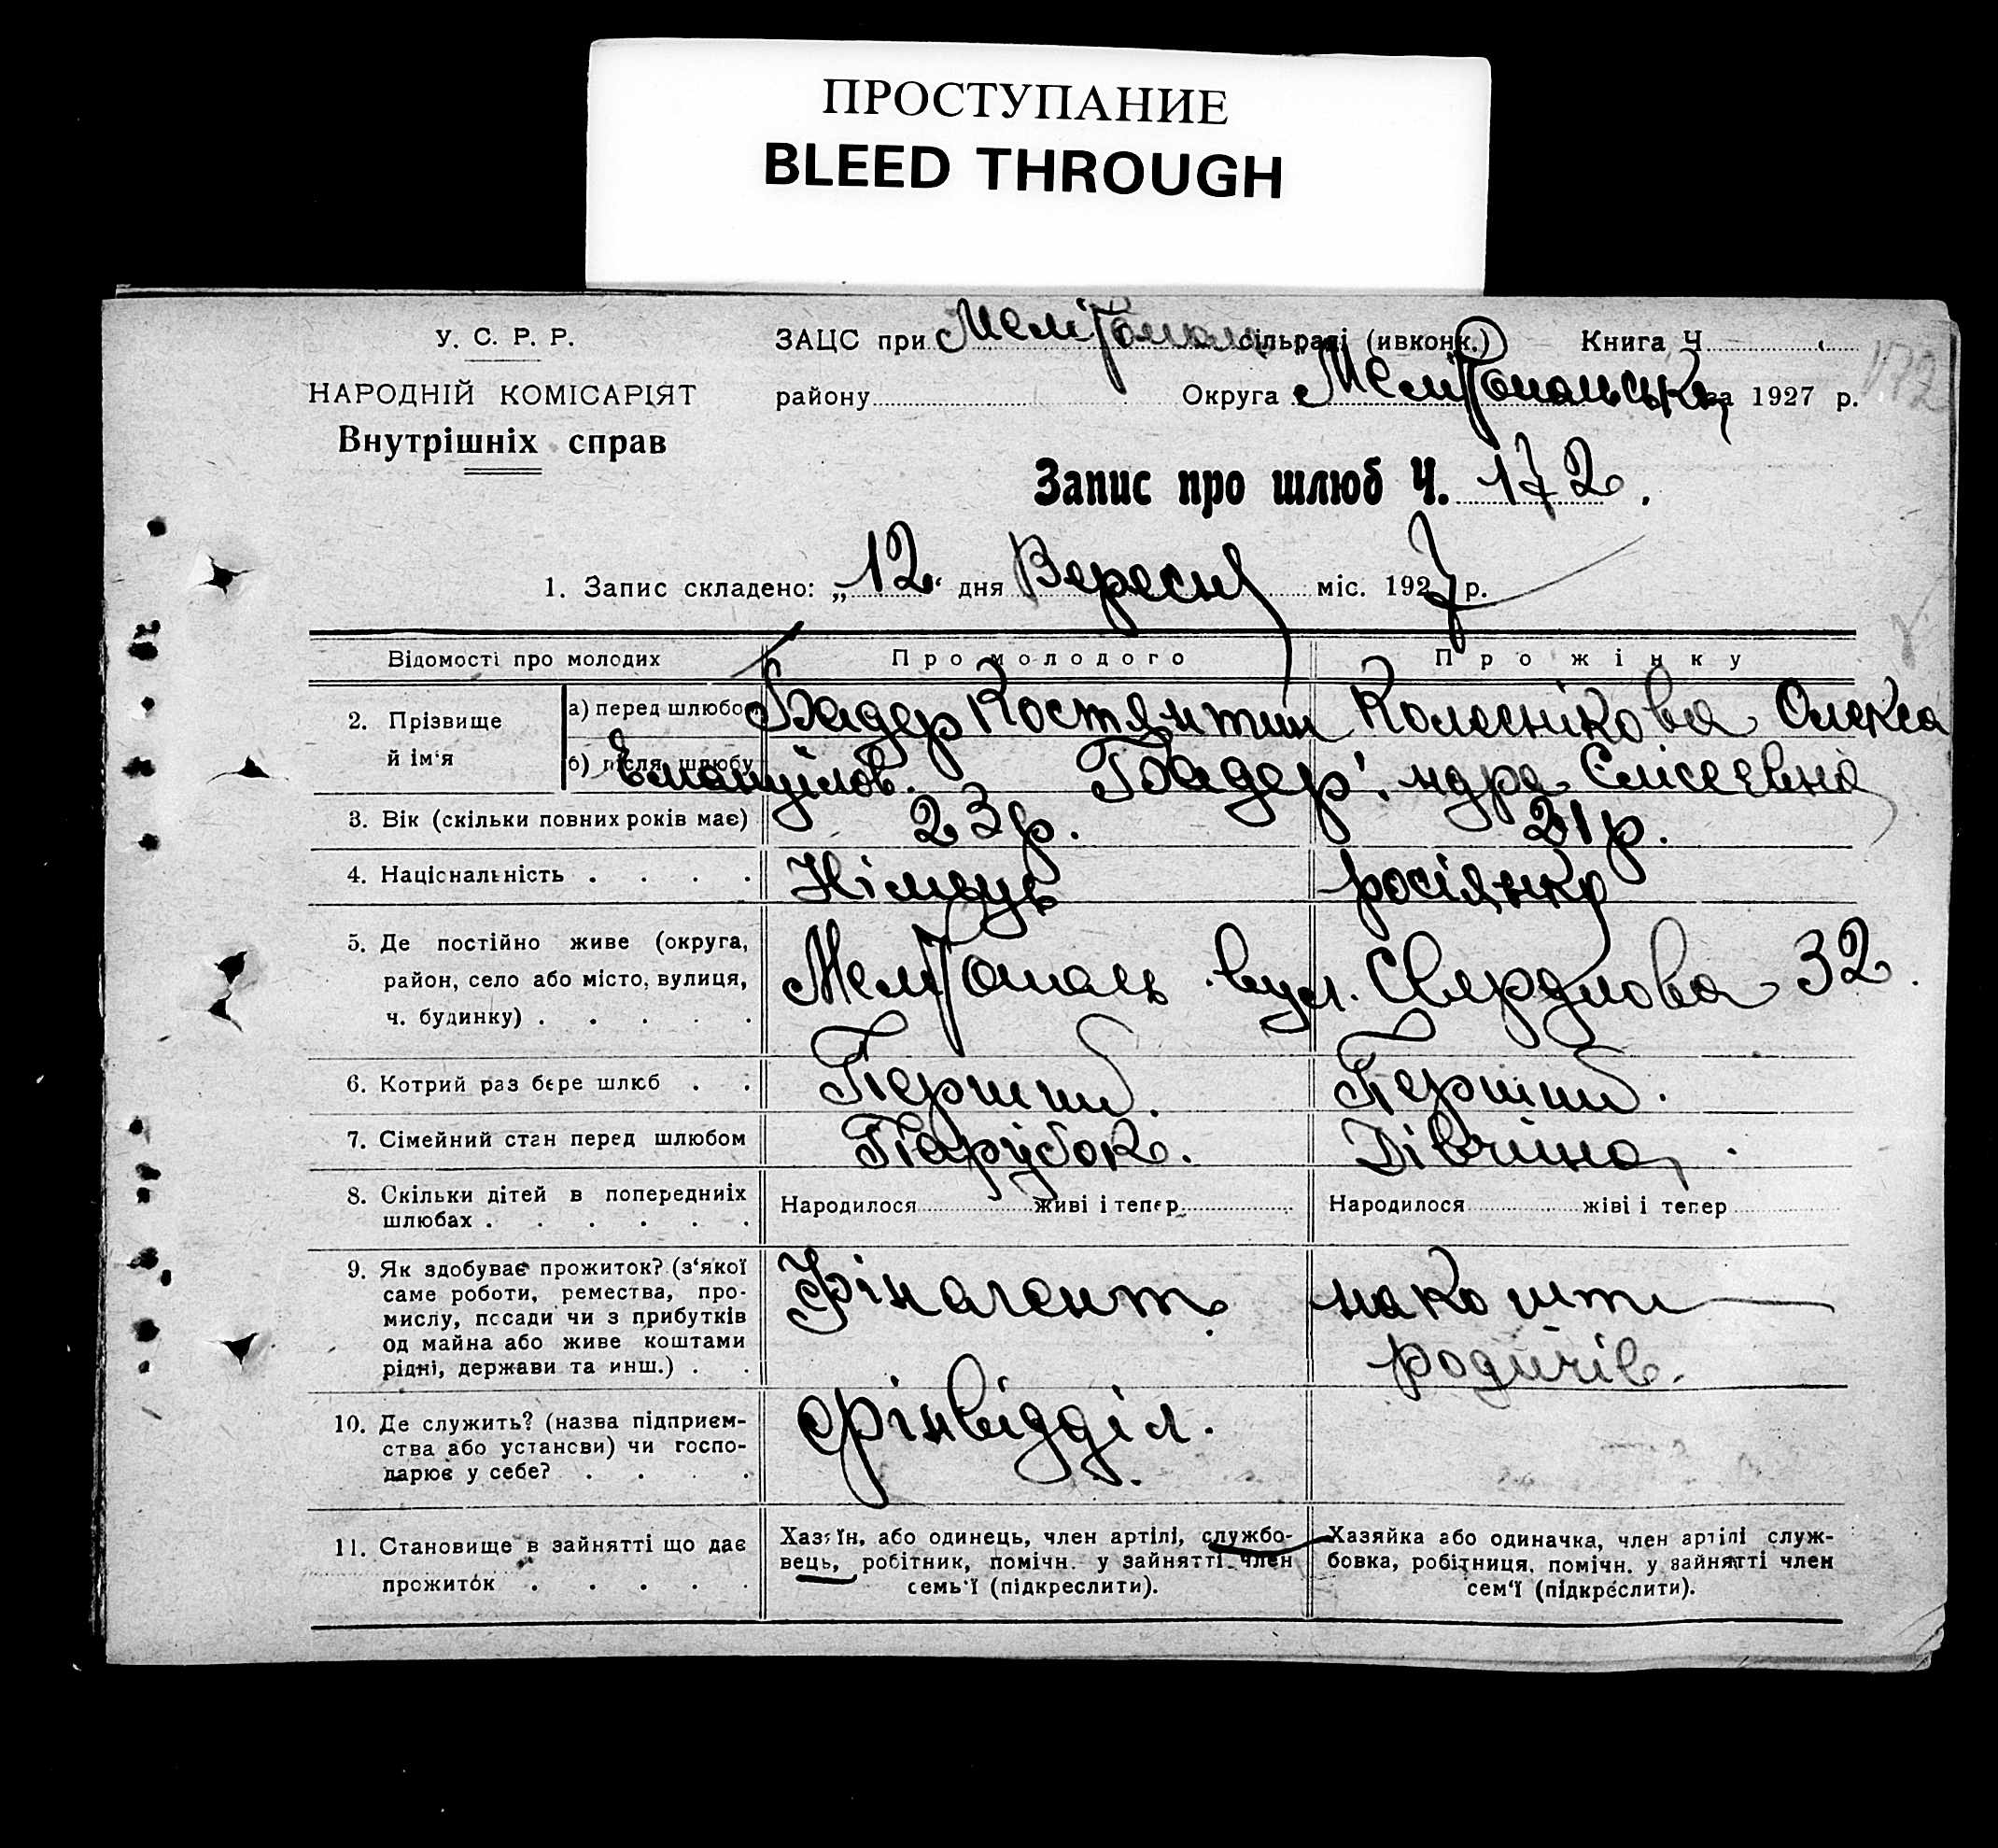 ПРОСТУПАНИЕ
BLEED THROUGH
У. С. Р. Р.
НАРОДНІЙ КОМІСАРІЯТ
Внутрішніх справ
ЗАЦС при Мелітополь сільраді (ивконк.) Книга Ч
району Округа Мелітопольська за 1927 р.
172
Запис про шлюб Ч. 172.
1. Запис складено: „12“ дня Вересня міс. 1927 р.
Відомості про молодих
Про молодого
Про жінку
2. Прізвище й ім‘я
а) перед шлюбом
Бадер Костянтин
Колеснікова Олекса
б) після шлюбу
Емануілов. Бадер.
ндра Єлісеєвна
3. Вік (скільки повних років має)
23 р.
21 р.
4. Національність . . . .
Німець
росіянка
5. Де постійно живе (округа,
район, село або місто, вулиця,
ч. будинку) . . . . .
Мелітополь вул. Свердлова 32.
6. Котрий раз бере шлюб . .
Перший.
Перший.
7. Сімейний стан перед шлюбом
Парубок.
Дівчина.
8. Скільки дітей в попередниіх
шлюбах . . . . . .
Народилося живі і тепер
Народилося жіві і тепер
9. Як здобуває прожиток? (з‘якої
саме роботи, ремества, про-
мислу, посади чи з прибутків
од майна або живе коштами
рідні, держави та инш.) . .
Фінагент.
на кошти
родичів.
10. Де служить? (назва підприєм-
ства або установи) чи госпо-
дарює у себе? . . . .
Фінвідділ.
11. Становище в зайнятті що дає
прожиток . . . . .
Хазяїн, або одинець, член артілі, службо-
вець, робітник, помічн. у зайнятті член
семь‘ї (підкреслити).
Хазяйка або одиначка, член артілі служ-
бовка, робітниця, помічн. у зайнятті член
сем‘ї (підкреслити).